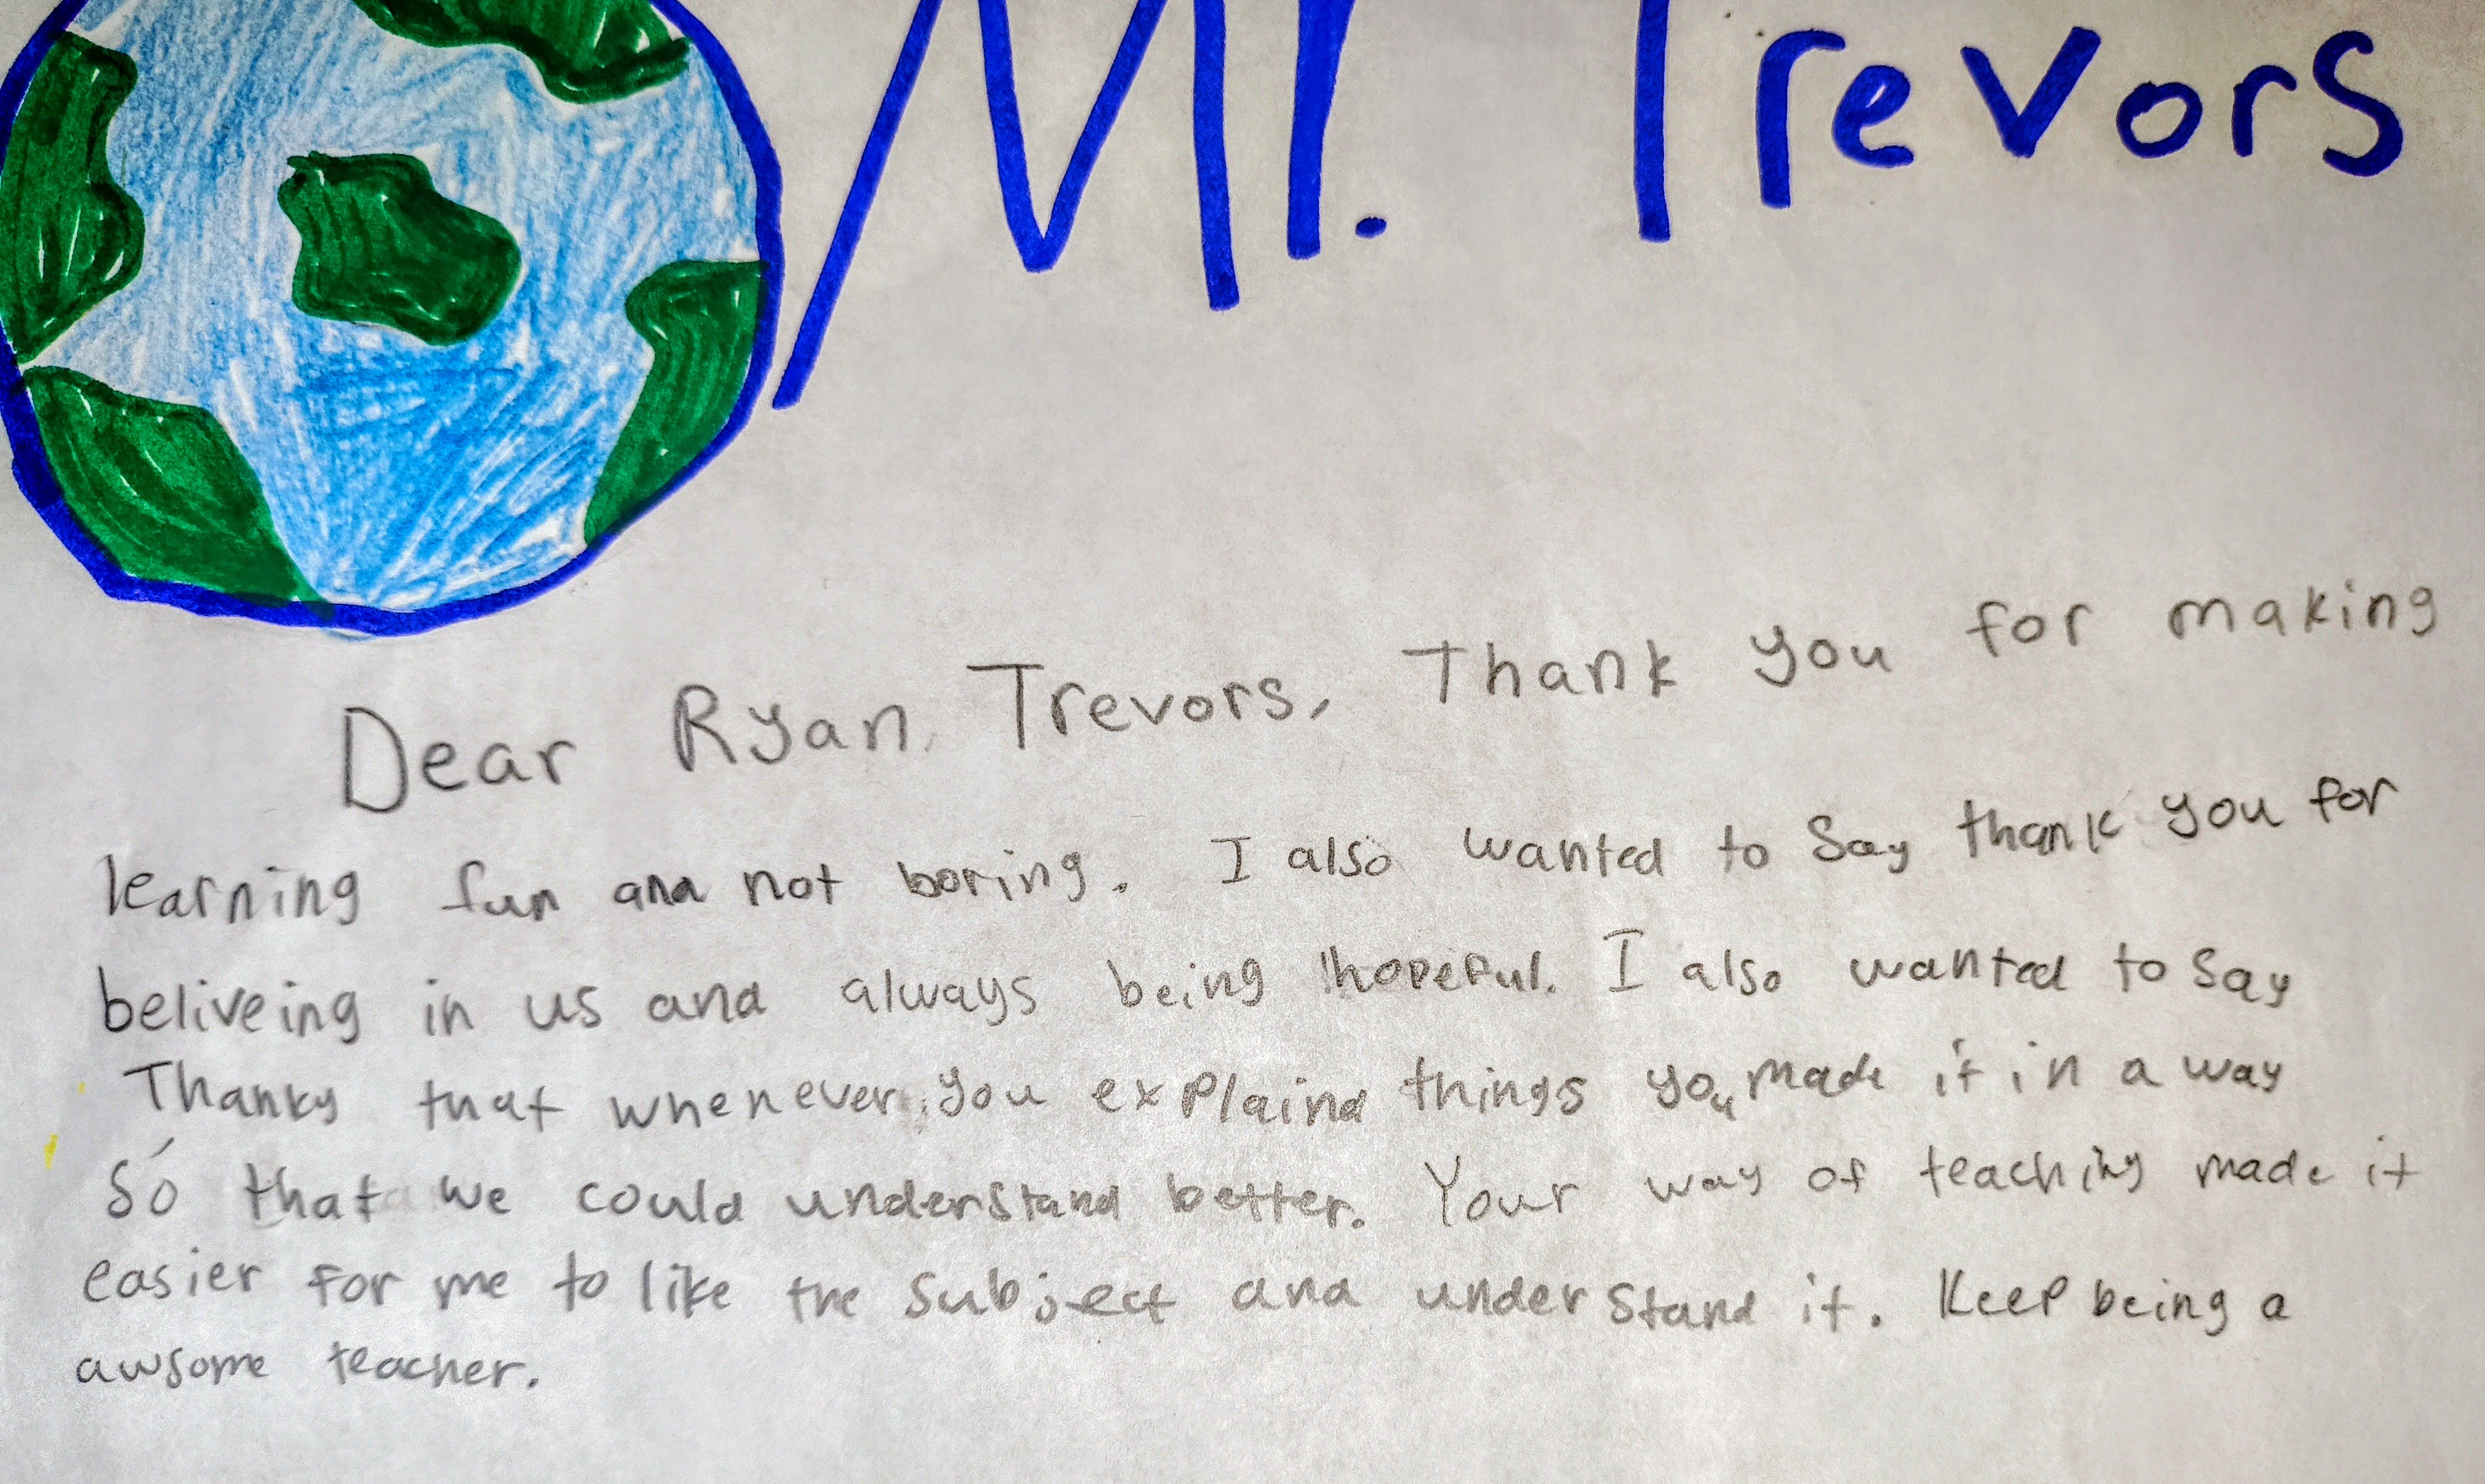 Mr. Trevors
Dear Ryan Trevors, Thank you for making
learning fun and not boring. I also wanted to Say thank you for
beliveing in us and always being hopeful. I also wanted to say
Thanky that whenever you explaind things you made it in a way
So that we could understand better. Your way of teaching made it
easier for me to like the subject and understand it. Keep being a
awsome teacher.